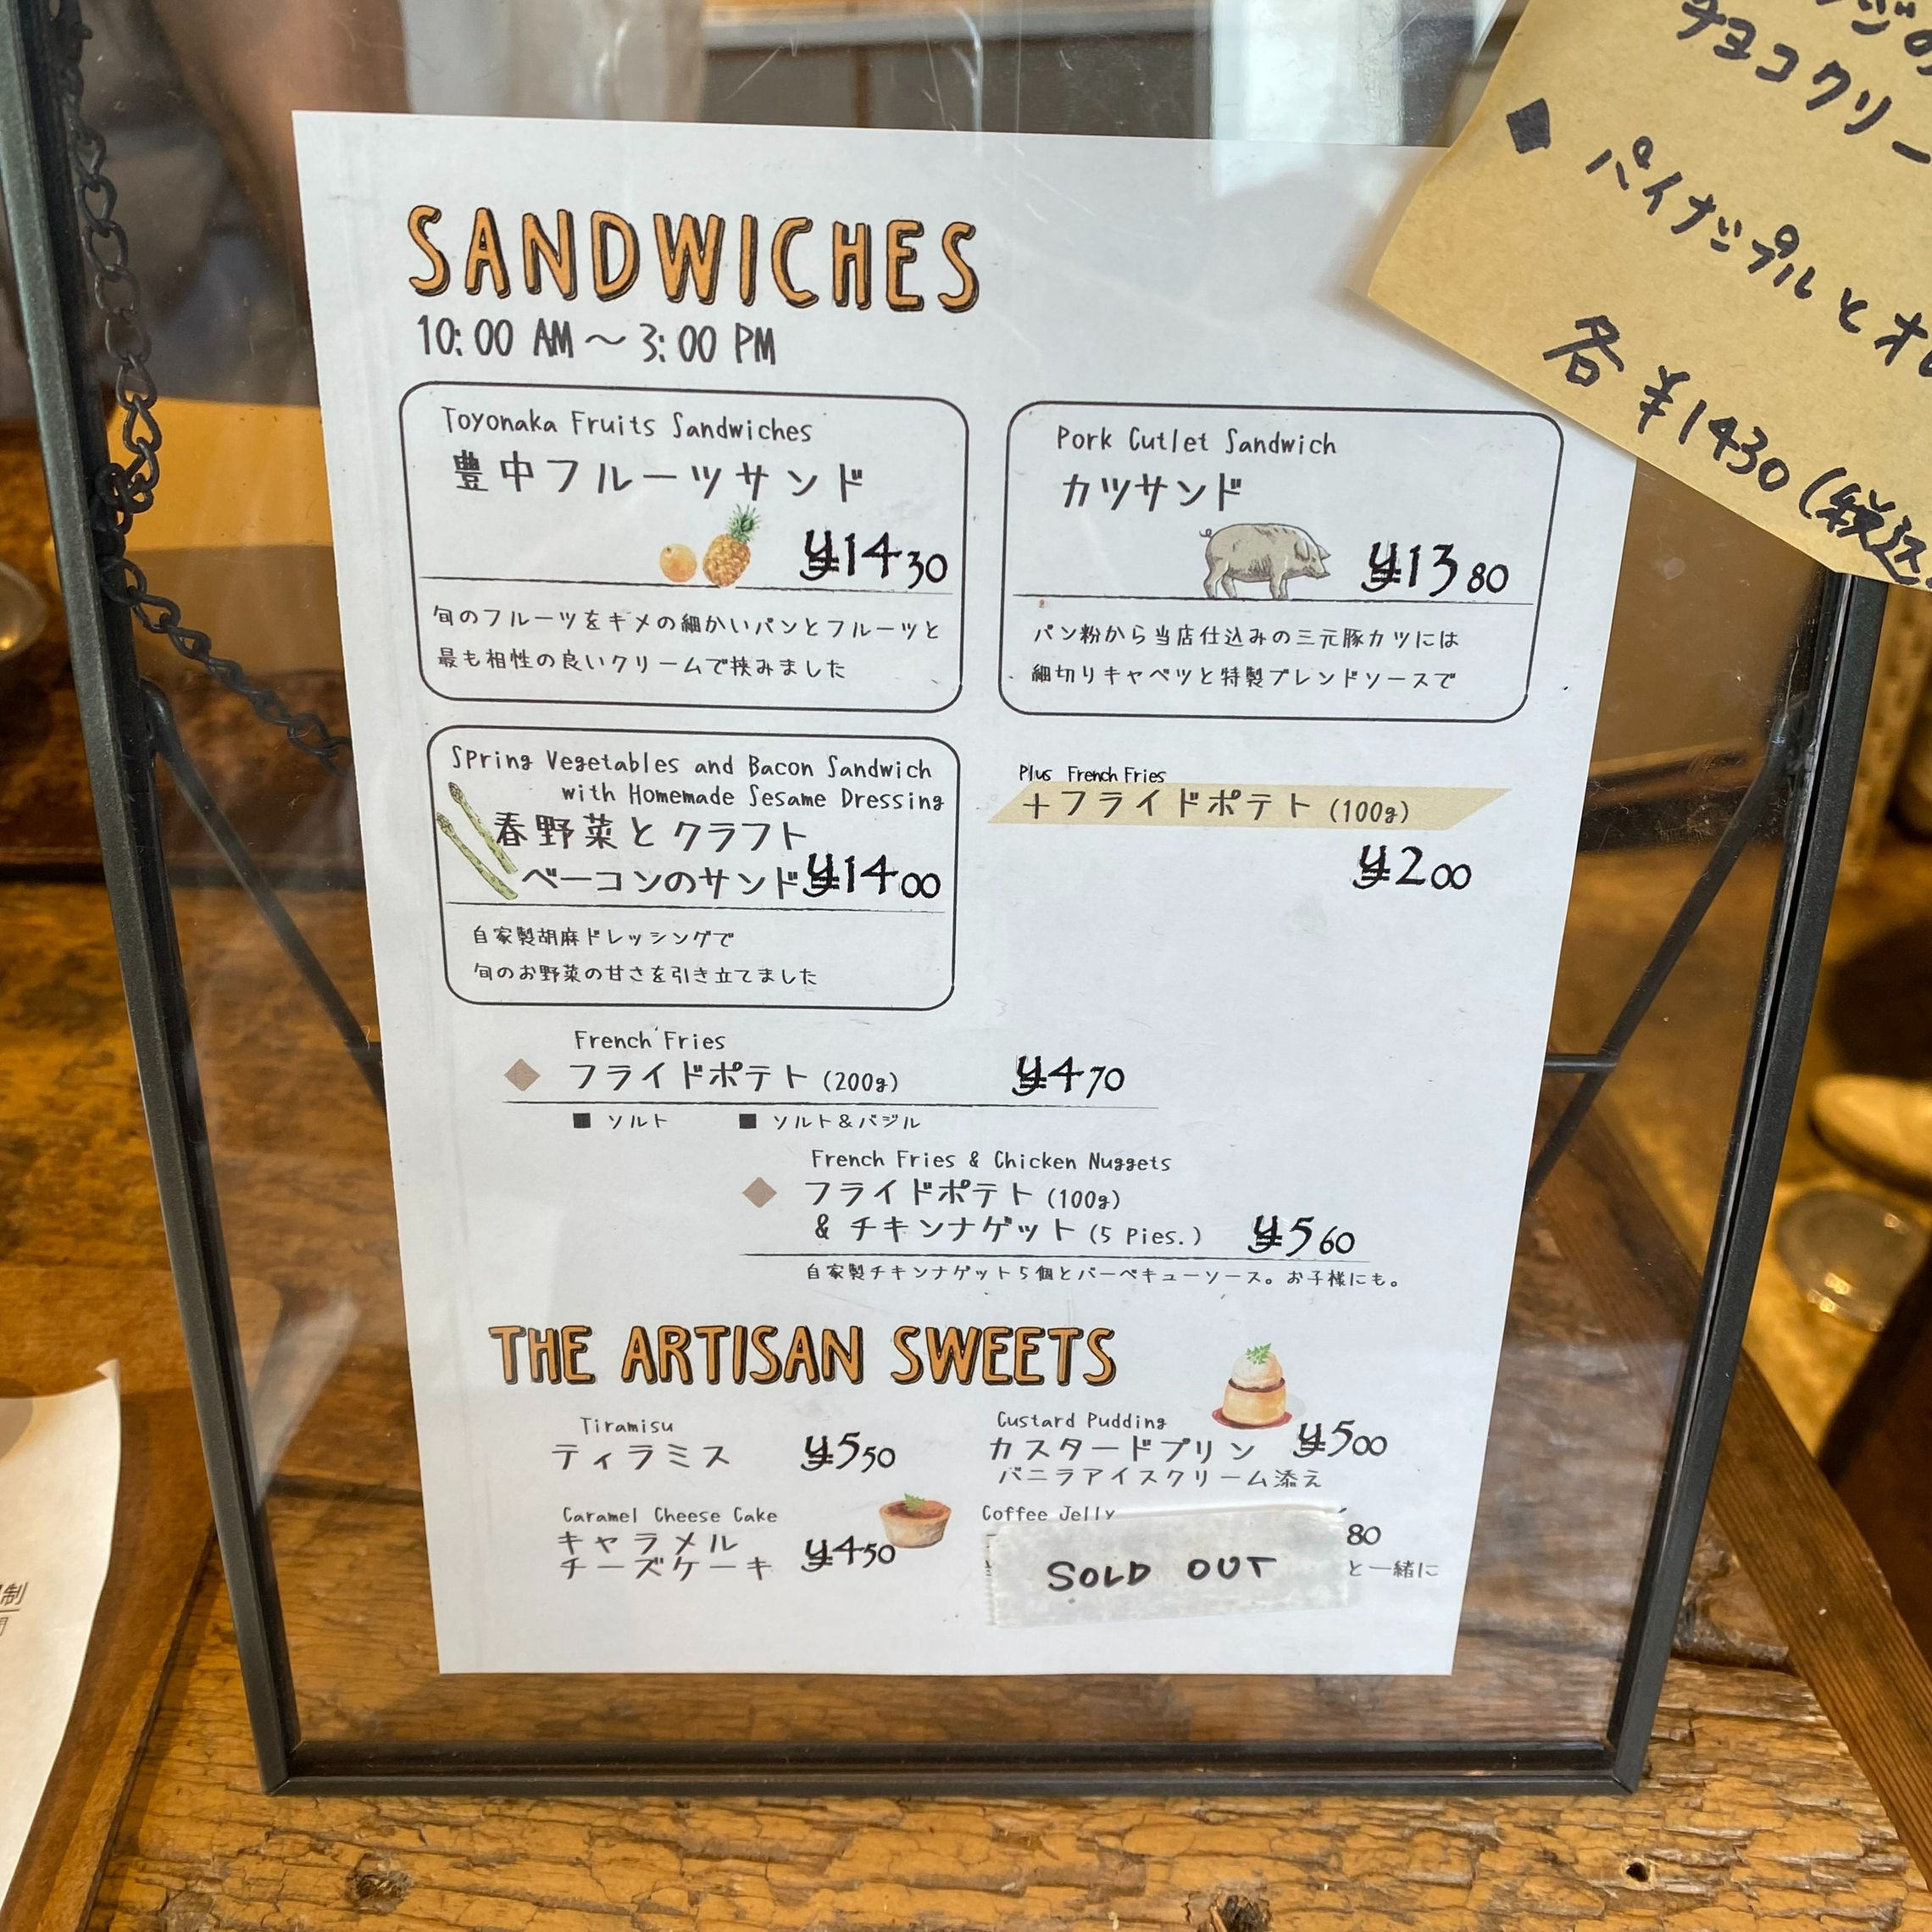 チョコクリー
◆ パイナップルとオレ
各 ¥1430(税込
SANDWICHES
10:00 AM〜3:00 PM
Toyonaka Fruits Sandwiches
豊中フルーツサンド
¥1430
旬のフルーツをキメの細かいパンとフルーツと
最も相性の良いクリームで挟みました
Pork Cutlet Sandwich
カツサンド
¥1380
パン粉から当店仕込みの三元豚カツには
細切りキャベツと特製ブレンドソースで
Spring Vegetables and Bacon Sandwich
with Homemade Sesame Dressing
春野菜とクラフト
ベーコンのサンド ¥1400
自家製胡麻ドレッシングで
旬のお野菜の甘さを引き立てました
Plus French Fries
+フライドポテト (100g)
¥200
French Fries
◆ フライドポテト (200g) ¥470
■ ソルト ■ ソルト&バジル
French Fries & Chicken Nuggets
◆ フライドポテト (100g)
& チキンナゲット (5 Pies.) ¥560
自家製チキンナゲット5個とバーベキューソース。お子様にも。
THE ARTISAN SWEETS
Tiramisu
ティラミス ¥550
Custard Pudding
カスタードプリン ¥500
バニラアイスクリーム添え
Caramel Cheese Cake
キャラメル
チーズケーキ ¥450
Coffee Jelly
80
SOLD OUT
と一緒に
制